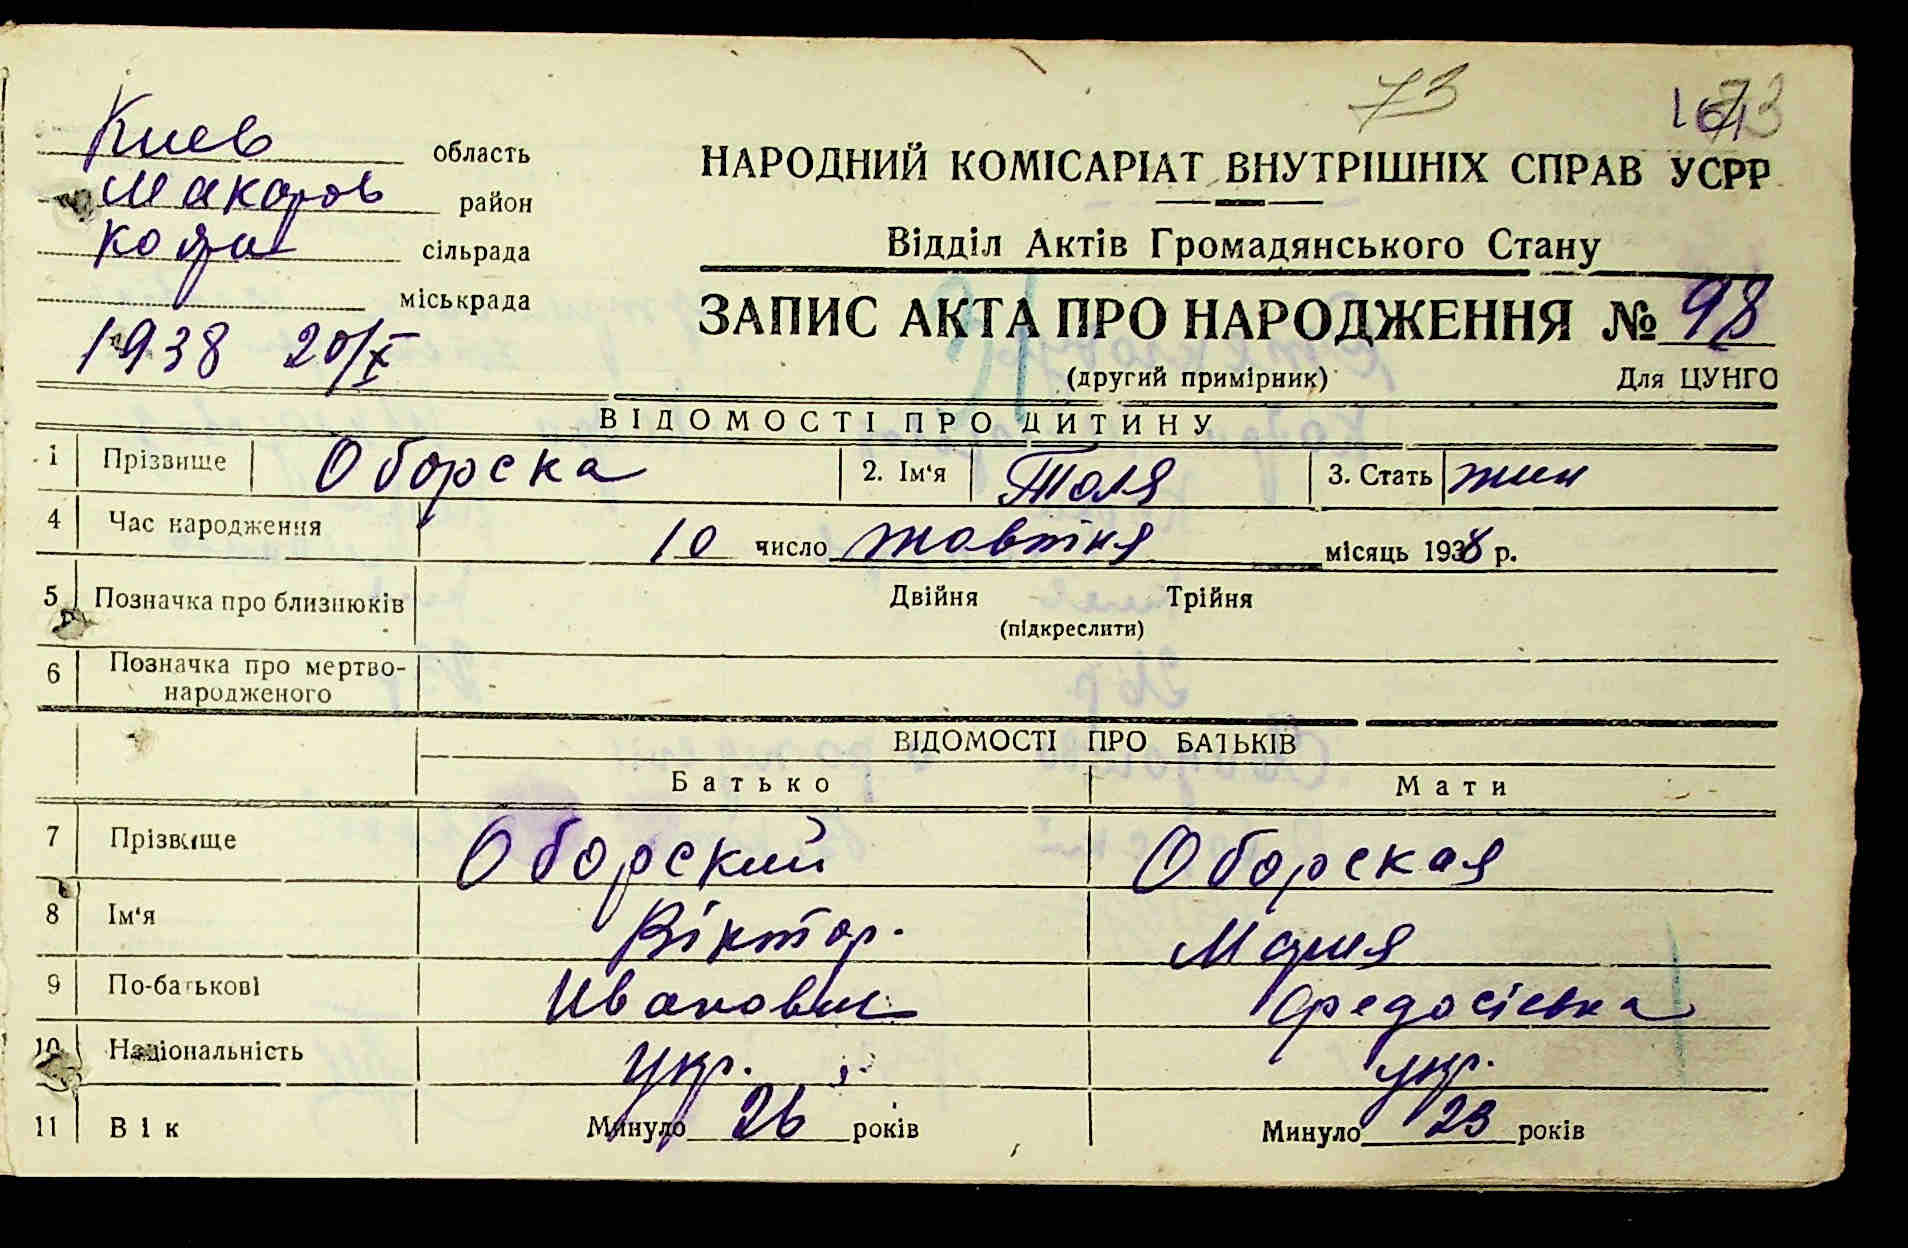 73 73
Киев область
Макаров район
сільрада
міськрада
1938 20/X
НАРОДНИЙ КОМІСАРІАТ ВНУТРІШНІХ СПРАВ УСРР
Відділ Актів Громадянського Стану
ЗАПИС АКТА ПРО НАРОДЖЕННЯ № 98
(другий примірник) Для ЦУНГО
ВІДОМОСТІ ПРО ДИТИНУ
1 Прізвище Оборска 2. Ім'я Толя 3. Стать жин
4 Час народження 10 число жовтня місяць 1938 р.
5 Позначка про близнюків Двійня Трійня
(підкреслити)
6 Позначка про мертво-
народженого
ВІДОМОСТІ ПРО БАТЬКІВ
Батько Мати
7 Прізвище Оборский Оборская
8 Ім'я Віктор. Мария
9 По-батькові Иванович Федосієвна
10 Національність укр. укр.
11 Вік Минуло 26 років Минуло 23 років